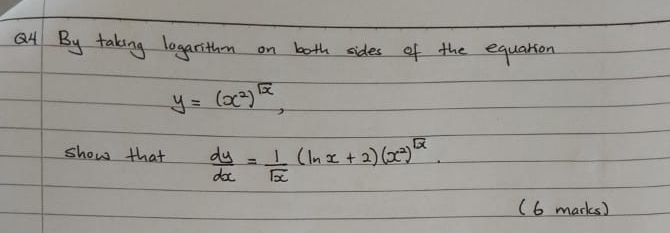 Q4 By taking logarithm on both sides of the equation
y = (x²)^√x,
show that dy/dx = 1/√x (ln x + 2)(x²)^√x.
(6 marks)